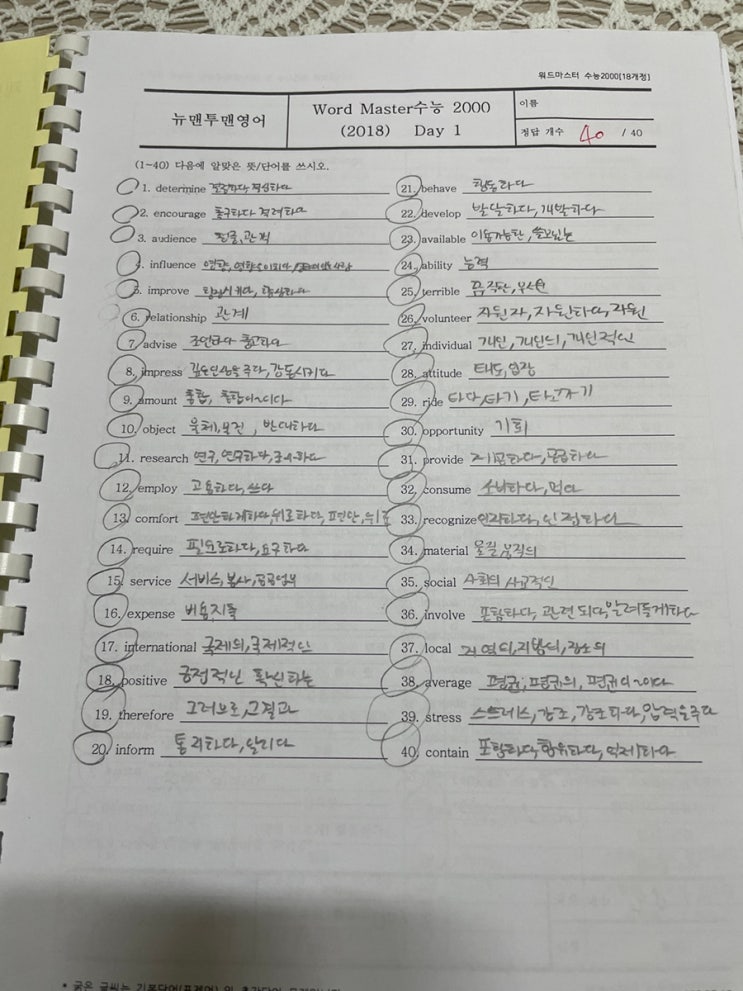 워드마스터 수능2000[18개정]
뉴맨투맨영어
Word Master수능 2000
(2018) Day 1
이름
정답 개수 40 / 40
(1~40) 다음에 알맞은 뜻/단어를 쓰시오.
1. determine
2. encourage
3. audience 청중,관객
4. influence
5. improve
6. relationship 관계
7. advise 조언하다
8. impress 깊은인상을 주다,감동시키다
9. amount 총합,
10. object 물체,물건, 반대하다
11. research 연구,연구하다,조사하다
12. employ 고용하다,쓰다
13. comfort 편안하게하다,위로하다,편안,위로
14. require 필요로하다,요구하다
15. service 서비스,봉사,공공업무
16. expense 비용,지출
17. international 국제의,국제적인
18. positive 긍정적인 확신하는
19. therefore 그러므로,그결과
20. inform 통지하다,알리다
21. behave 행동하다
22. develop 발달하다,개발하다
23. available 이용가능한,쓸모있는
24. ability 능력
25. terrible 끔찍한,무서운
26. volunteer 자원자,자원하다,자원
27. individual 개인,개인의,개인적인
28. attitude 태도,입장
29. ride 타다,타기,
30. opportunity 기회
31. provide 제공하다,공급하다
32. consume 소비하다,먹다
33. recognize 인지하다,인정하다
34. material 물질 물질의
35. social 사회의 사교적인
36. involve 포함하다,관련되다,말려들게하다
37. local 지역의,지방의,장소의
38. average 평균,평균의,평균이~이다
39. stress 스트레스,강조,강조하다,압력을주다
40. contain 포함하다,함유하다,억제하다